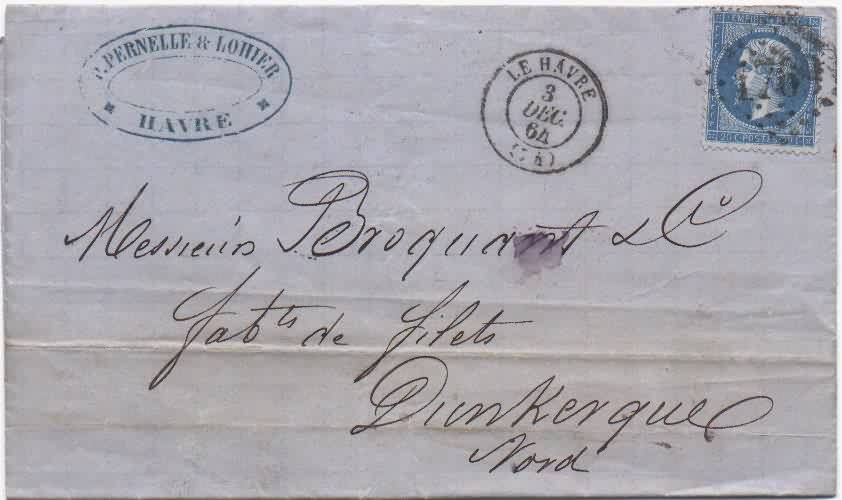 PERNELLE & LOHIER
HAVRE
LE HAVRE
3
DEC.
64
EMPIRE
20 C. POSTES 20 C.
Messieurs Broquant & Cie
fabts de filets
Dunkerque
Nord